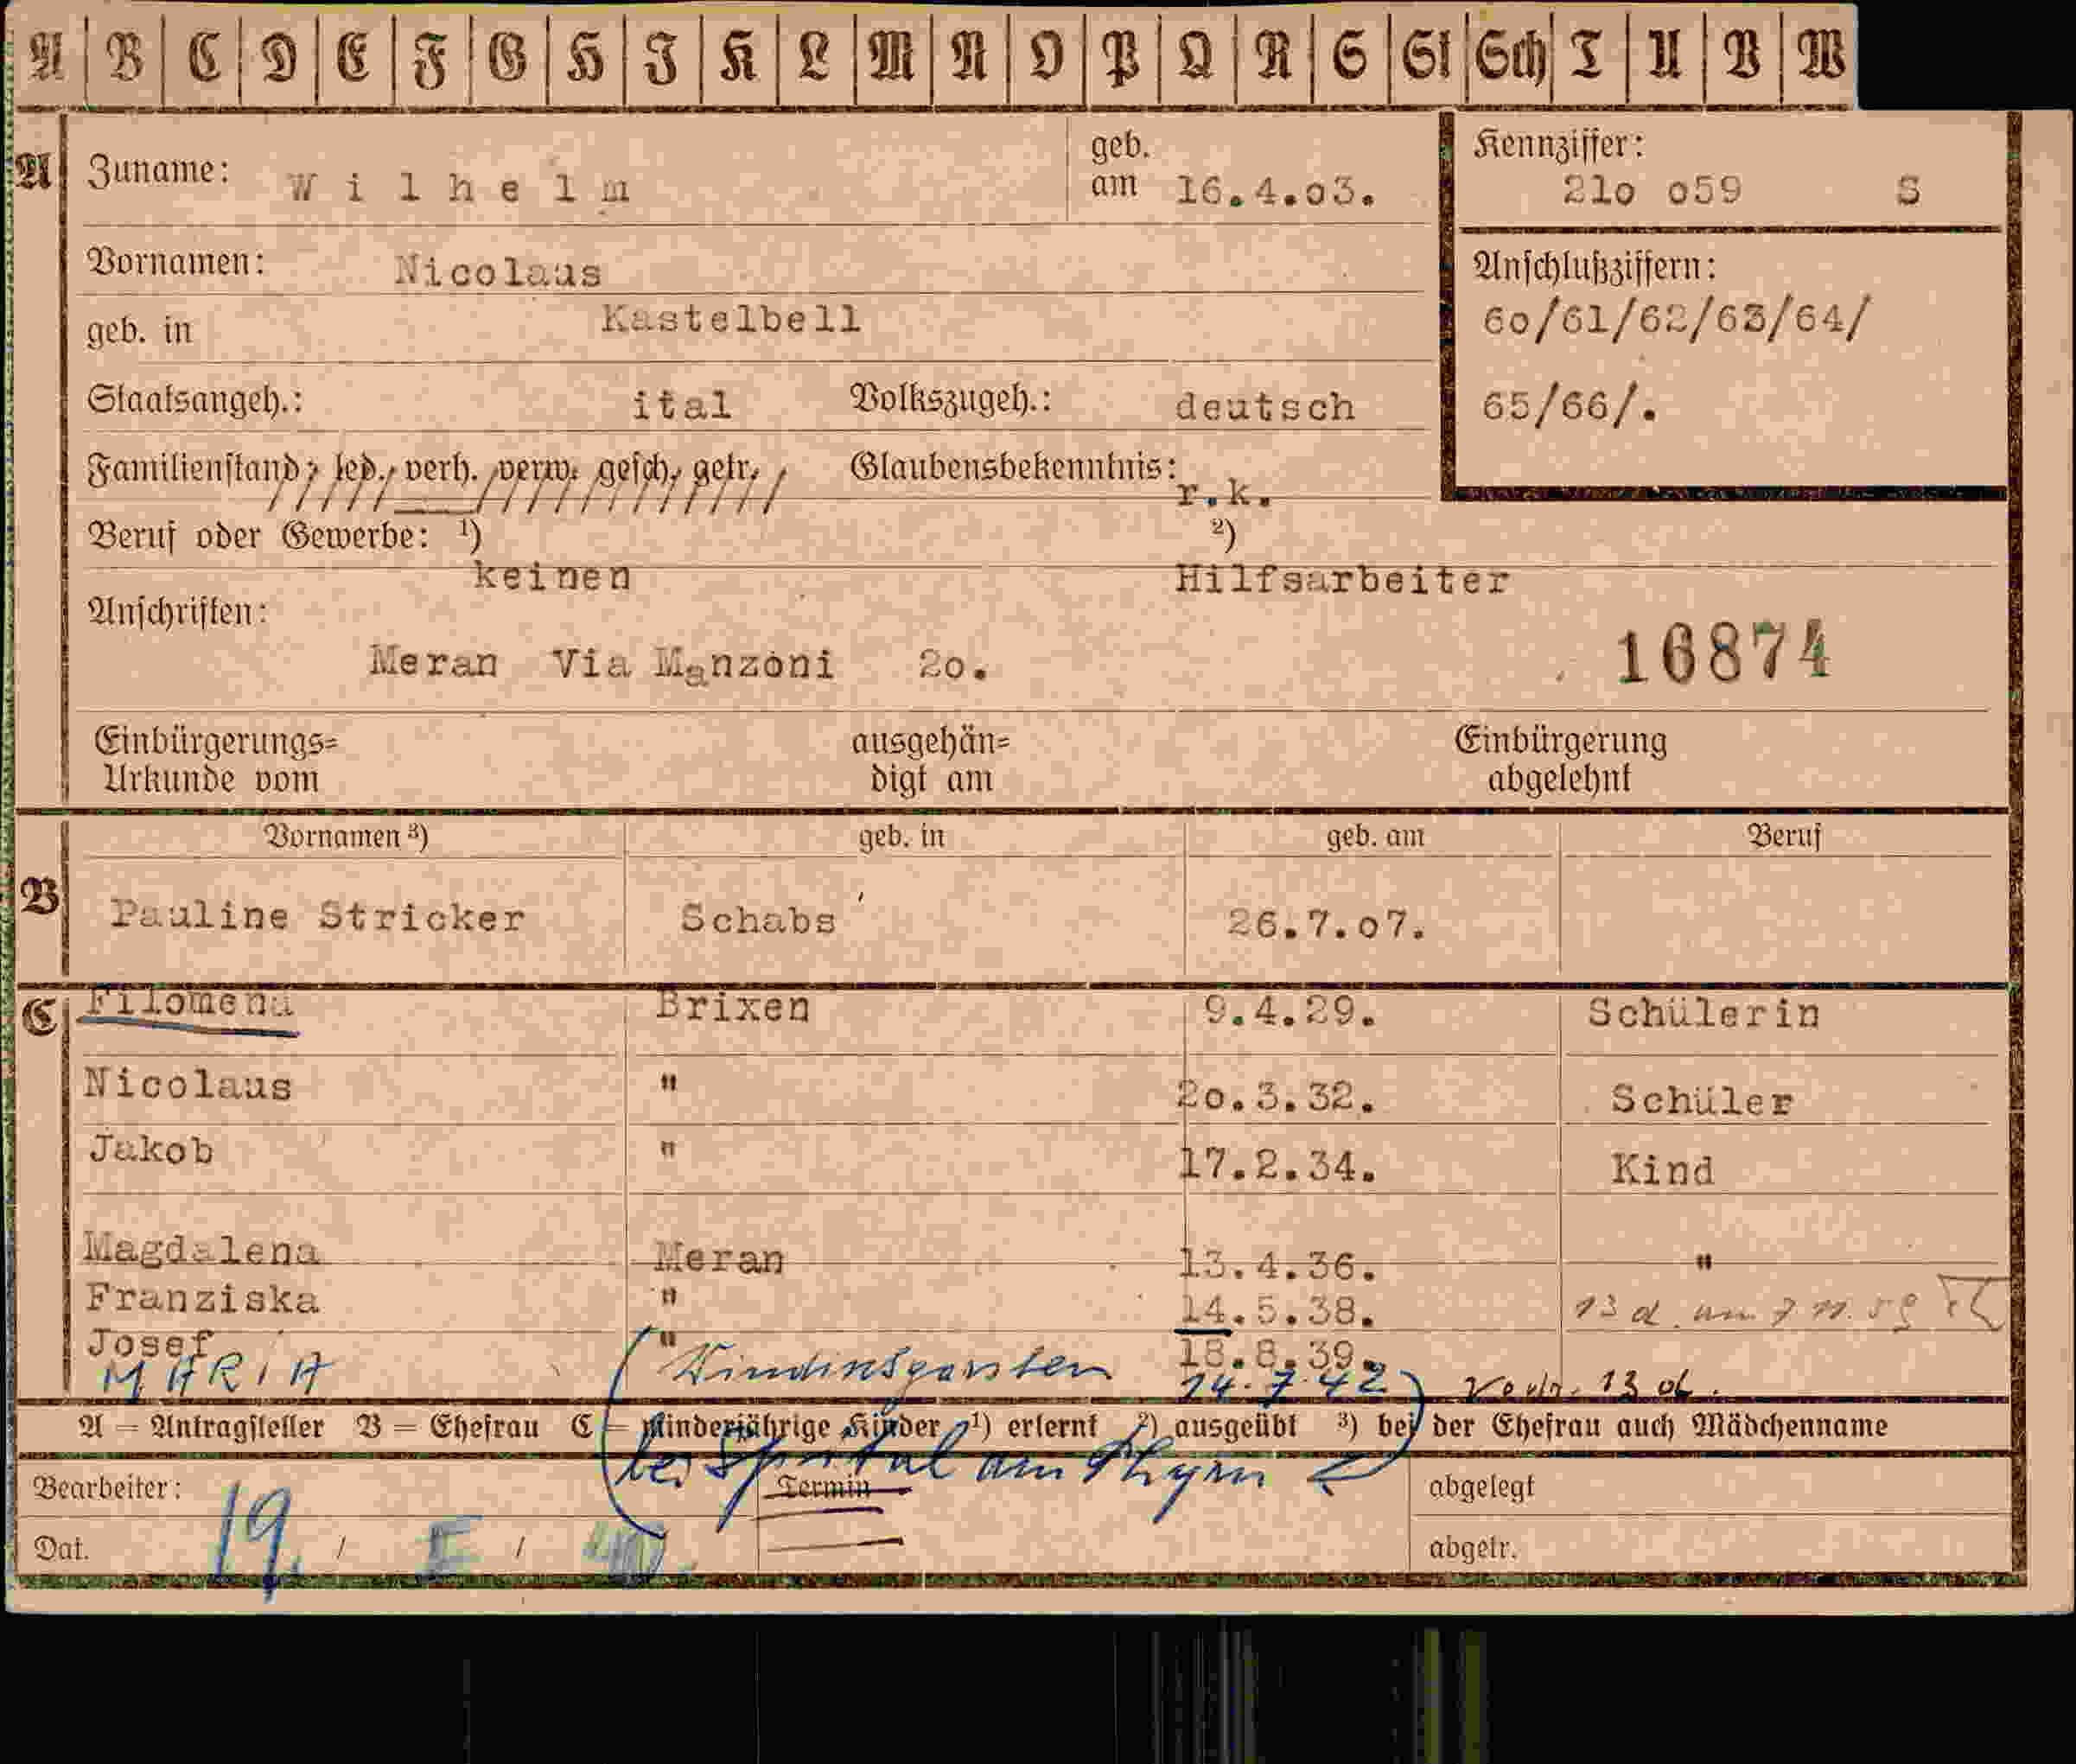 A B C D E F G H J K L M N O P Q R S St Sch T U V W
A Zuname: Wilhelm geb. am 16.4.o3. Kennziffer: 21o o59 S
Vornamen: Nicolaus Anschlußziffern:
geb. in Kastelbell 6o/61/62/63/64/
Staatsangeh.: ital Volkszugeh.: deutsch 65/66/.
Familienstand: led., verh. verw. gesch. getr. Glaubensbekenntnis: r.k.
Beruf oder Gewerbe: ¹) keinen ²) Hilfsarbeiter
Anschriften:
Meran Via Manzoni 2o. 16874
Einbürgerungs= ausgehän= Einbürgerung
Urkunde vom digt am abgelehnt
Vornamen ³) geb. in geb. am Beruf
B Pauline Stricker Schabs 26.7.o7.
C Filomena Brixen 9.4.29. Schülerin
Nicolaus " 2o.3.32. Schüler
Jakob " 17.2.34. Kind
Magdalena Meran 13.4.36. "
Franziska " 14.5.38. 13 d. am 7 11.
Josef " 18.8.39.
MARIA Windischgarsten 14.7.42 13 d.
A = Antragsteller B = Ehefrau C = Minderjährige Kinder ¹) erlernt ²) ausgeübt ³) bei der Ehefrau auch Mädchenname
bei Spital am Phyrn
Bearbeiter: Termin abgelegt
Dat. 19. / / 40. abgetr.